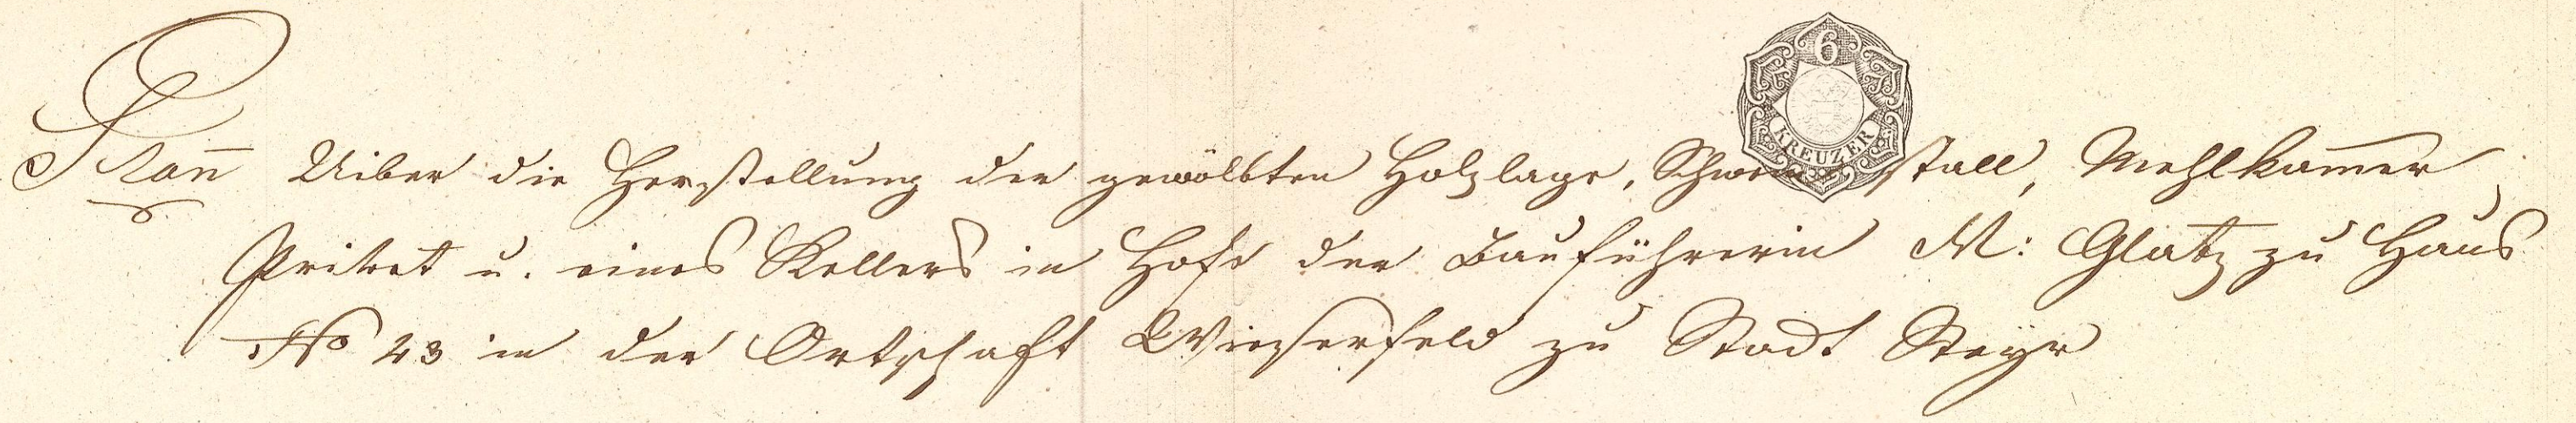 6
KREUZER
Plan̄ Uiber die Herstellung der gewölbten Holzlage, Schweinstall, Mehlkam̄er
Privet u. eines Kellers im Hofe der Bauführerin M: Glatz zu Haus
No 23 in der Ortschaft Wieserfeld zu Stadt Steyr